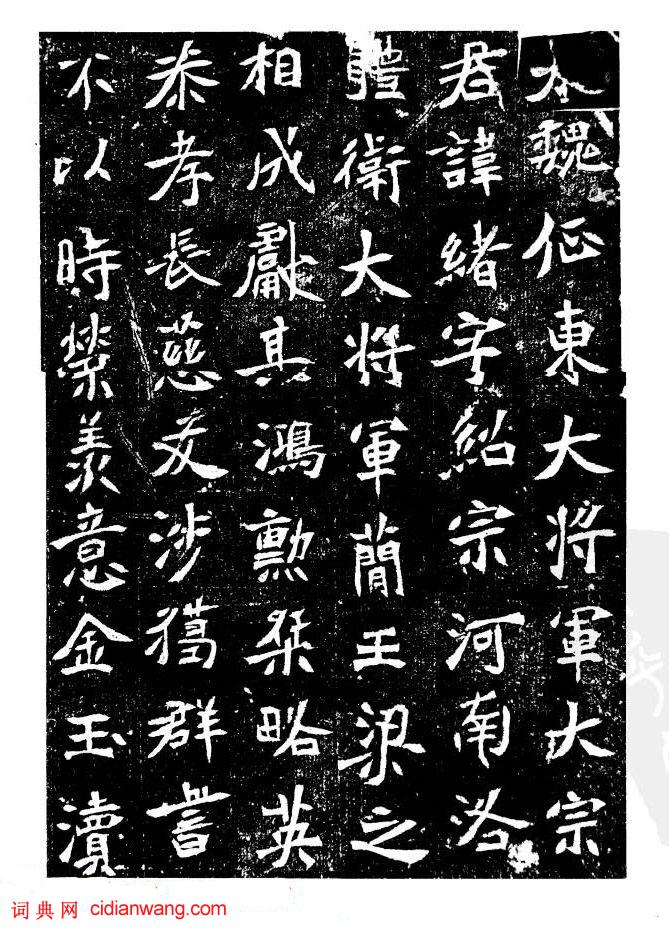 大魏征東大將軍大宗
君諱緒字紹宗河南洛
體衛大將軍簡王梁之
相成獻其鴻勳桀略英
恭孝長慈友涉獦群書
不以時榮羨意金玉瀆
词典网 cidianwang.com